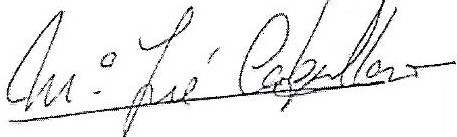 Mª José Caballero